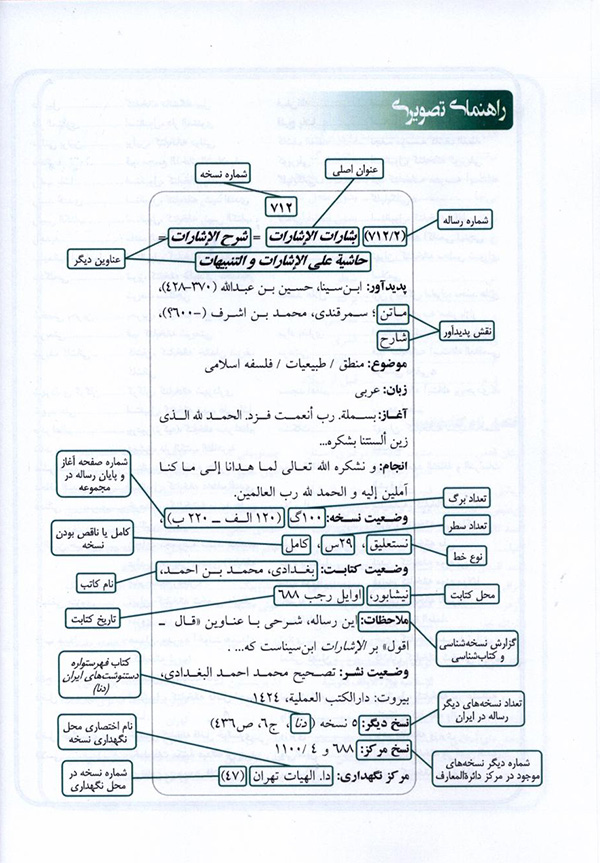 راهنمای تصویری
عنوان اصلی
شماره نسخه
۷۱۲
شماره رساله
(۷۱۲/۲) بشارات الإشارات = شرح الإشارات =
عناوین دیگر
حاشیة علی الإشارات و التنبیهات
پدیدآور: ابن‌سینا، حسین بن عبدالله (۳۷۰-۴۲۸)،
ماتن؛ سمرقندی، محمد بن اشرف (-۶۰۰؟)،
نقش پدیدآور
شارح
موضوع: منطق / طبیعیات / فلسفه اسلامی
زبان: عربی
آغاز: بسملة. رب أنعمت فزد. الحمد لله الذی
زین ألستنا بشکره...
انجام: و نشکره الله تعالی لما هدانا إلی ما کنا
آملین إلیه و الحمد لله رب العالمین.
شماره صفحه آغاز
و پایان رساله در
مجموعه
تعداد برگ
وضعیت نسخه: ۱۰۰گ (۱۲۰ الف ــ ۲۲۰ ب)،
تعداد سطر
کامل یا ناقص بودن
نسخه
نستعلیق، ۲۹س، کامل
نوع خط
وضعیت کتابت: بغدادی، محمد بن احمد،
نام کاتب
محل کتابت
نیشابور، اوایل رجب ۶۸۸
تاریخ کتابت
ملاحظات: این رساله، شرحی با عناوین «قال ــ
اقول» بر الإشارات ابن‌سیناست که... .
گزارش نسخه‌شناسی
و کتاب‌شناسی
وضعیت نشر: تصحیح محمد احمد البغدادی،
بیروت: دارالکتب العملیة، ۱۴۲۴
کتاب فهرستواره
دستنوشت‌های ایران
(دنا)
تعداد نسخه‌های دیگر
رساله در ایران
نسخ دیگر: ۵ نسخه (دنا، ج۶، ص۴۳۶)
نام اختصاری محل
نگهداری نسخه
نسخ مرکز: ۶۸۸ و ۴ /۱۱۰۰
شماره دیگر نسخه‌های
موجود در مرکز دائرةالمعارف
مرکز نگهداری: دا. الهیات تهران (۴۷)
شماره نسخه در
محل نگهداری